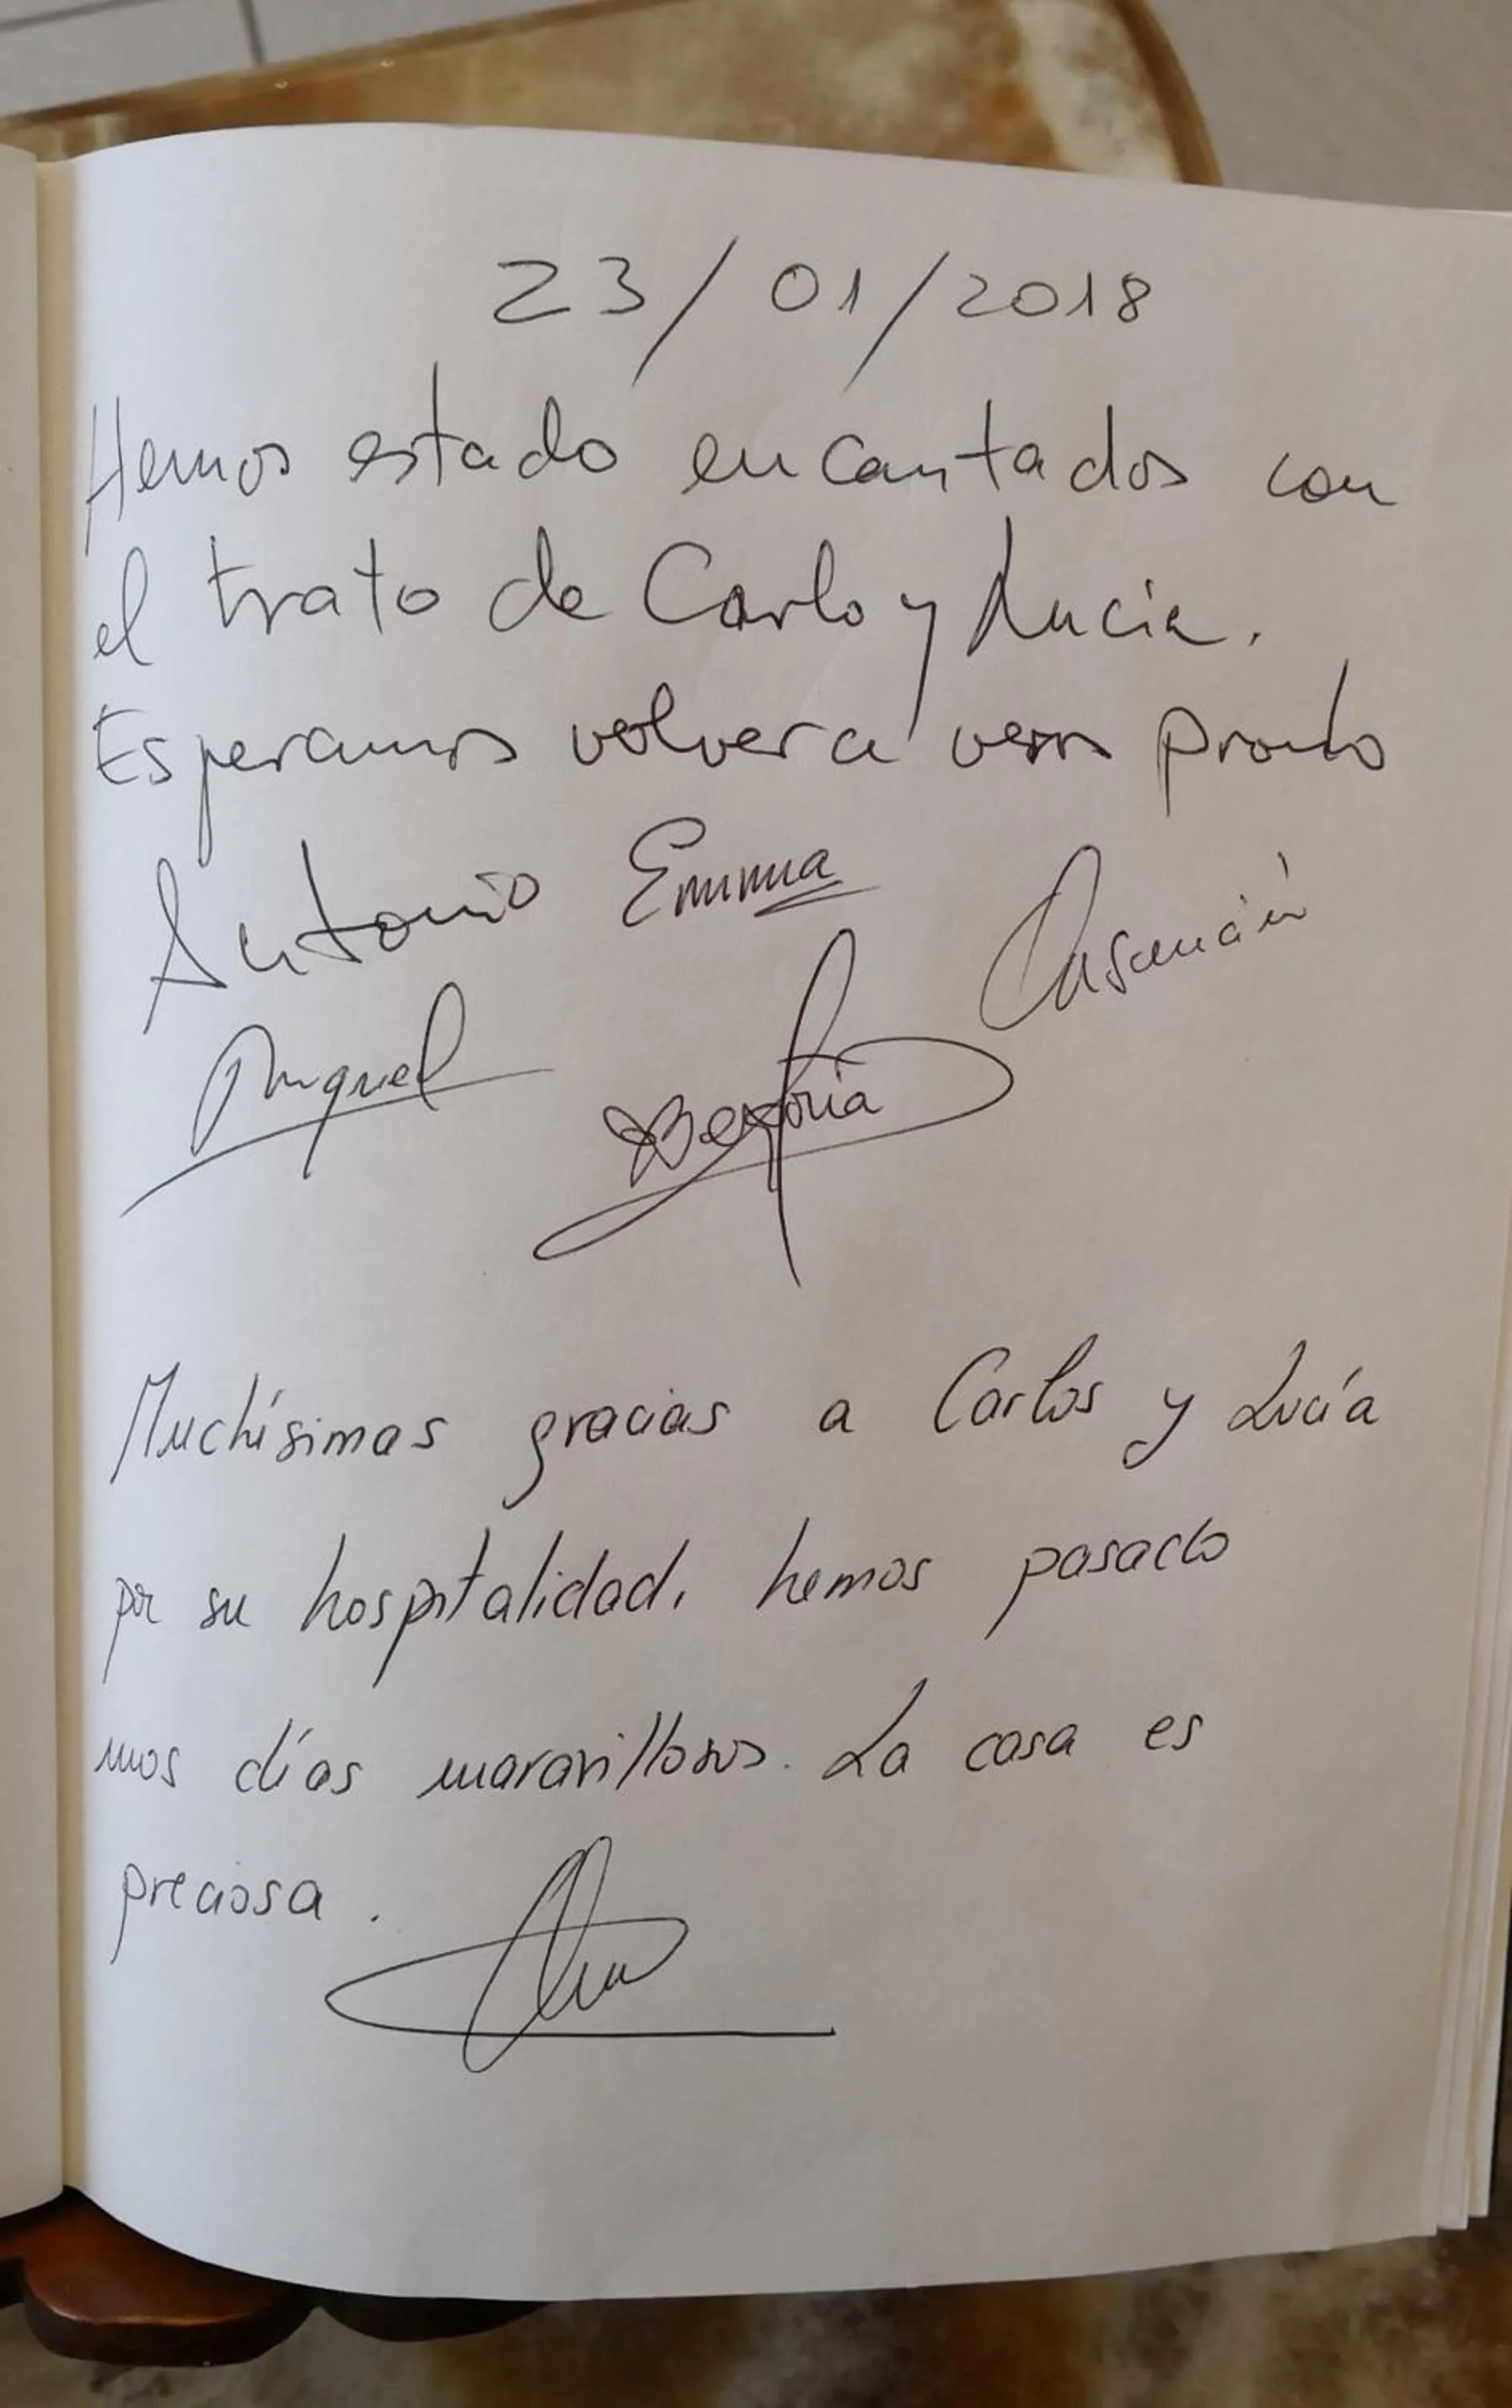 23/01/2018
Hemos estado encantados con
el trato de Carlo y Lucia.
Esperamos volver a vernos pronto
Antonio Emma
Miguel
Muchísimas gracias a Carlos y Lucía
por su hospitalidad, hemos pasado
unos días maravillosos. La casa es
preciosa.